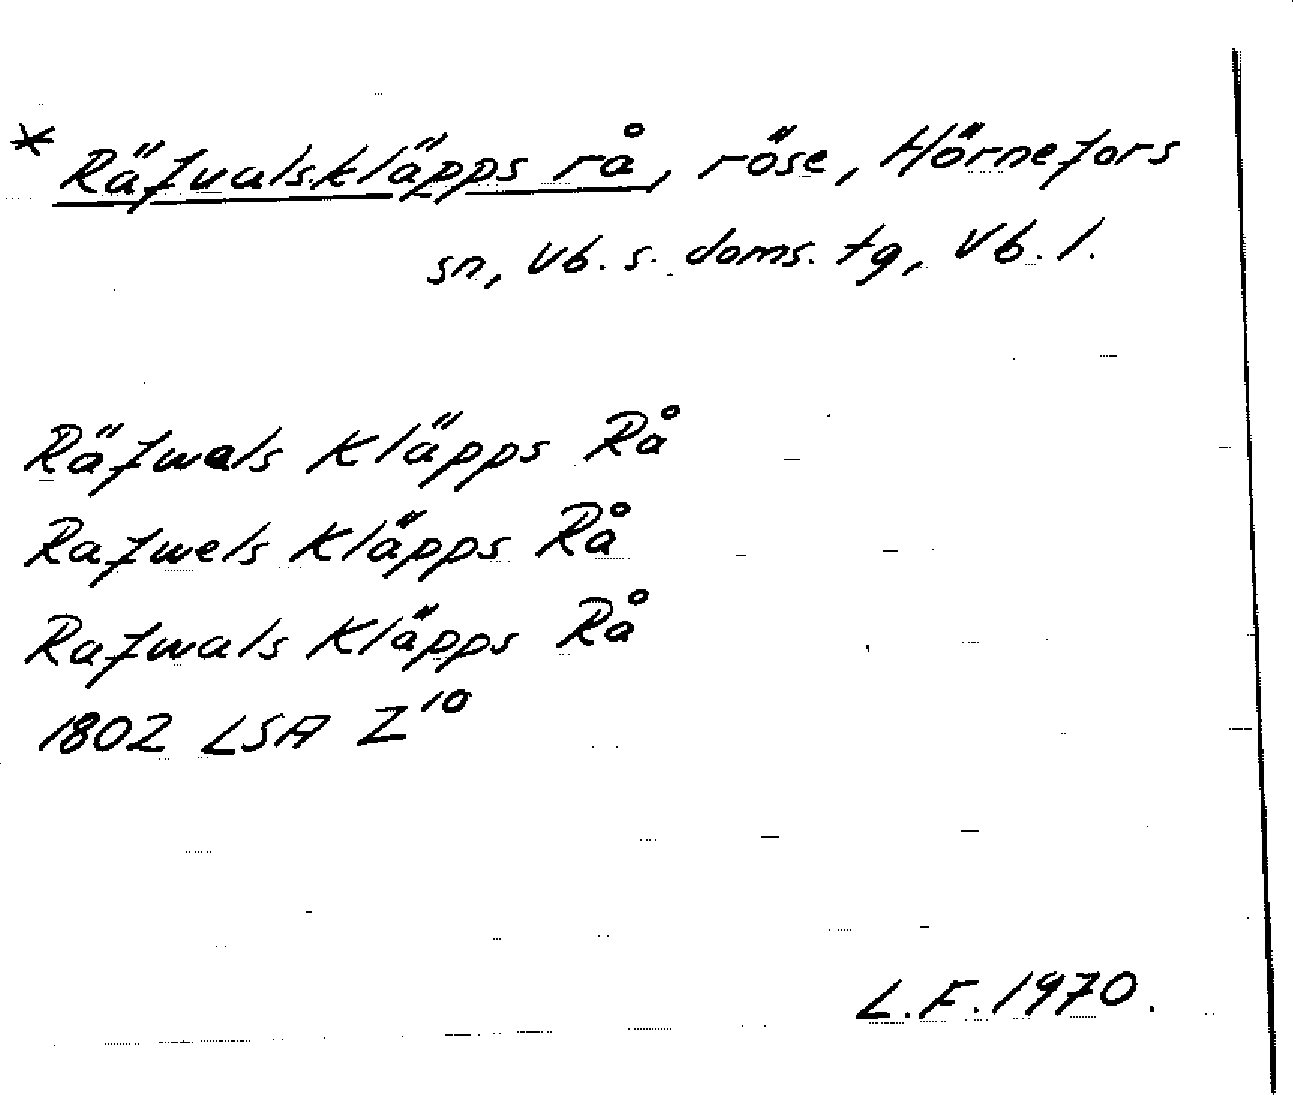 * Räfvalskläpps rå, röse, Hörnefors
sn, Vb. s. doms. tg, Vb. l.
Räfwals Kläpps Rå
Rafwels Kläpps Rå
Rafwals Kläpps Rå
1802 LSA Z¹⁰
L.F. 1970.